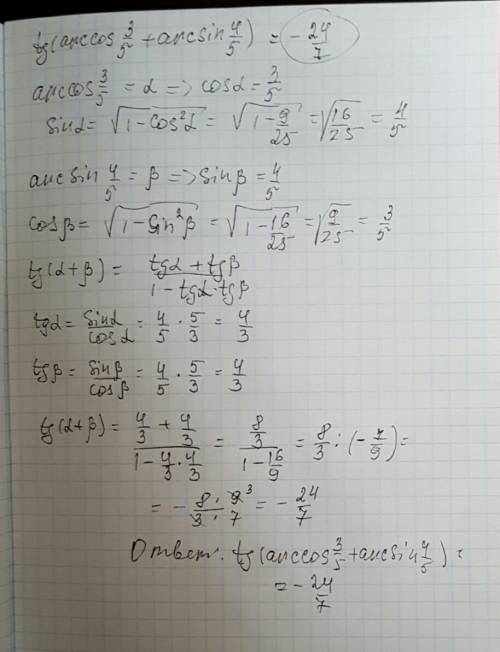 tg(arccos 3/5 + arcsin 4/5) = - 24/7
arccos 3/5 = α => cosα = 3/5
sinα = √(1-cos²α) = √(1-9/25) = √(16/25) = 4/5
arcsin 4/5 = β => sinβ = 4/5
cosβ = √(1-sin²β) = √(1-16/25) = √(9/25) = 3/5
tg(α+β) = (tgα + tgβ)/(1-tgα·tgβ)
tgα = sinα/cosα = 4/5 · 5/3 = 4/3
tgβ = sinβ/cosβ = 4/5 · 5/3 = 4/3
tg(α+β) = (4/3 + 4/3)/(1-4/3·4/3) = (8/3)/(1-16/9) = 8/3 : (-7/9) =
= - (8 · 9³)/(3 · 7) = - 24/7
Ответ: tg(arccos 3/5 + arcsin 4/5) =
= - 24/7